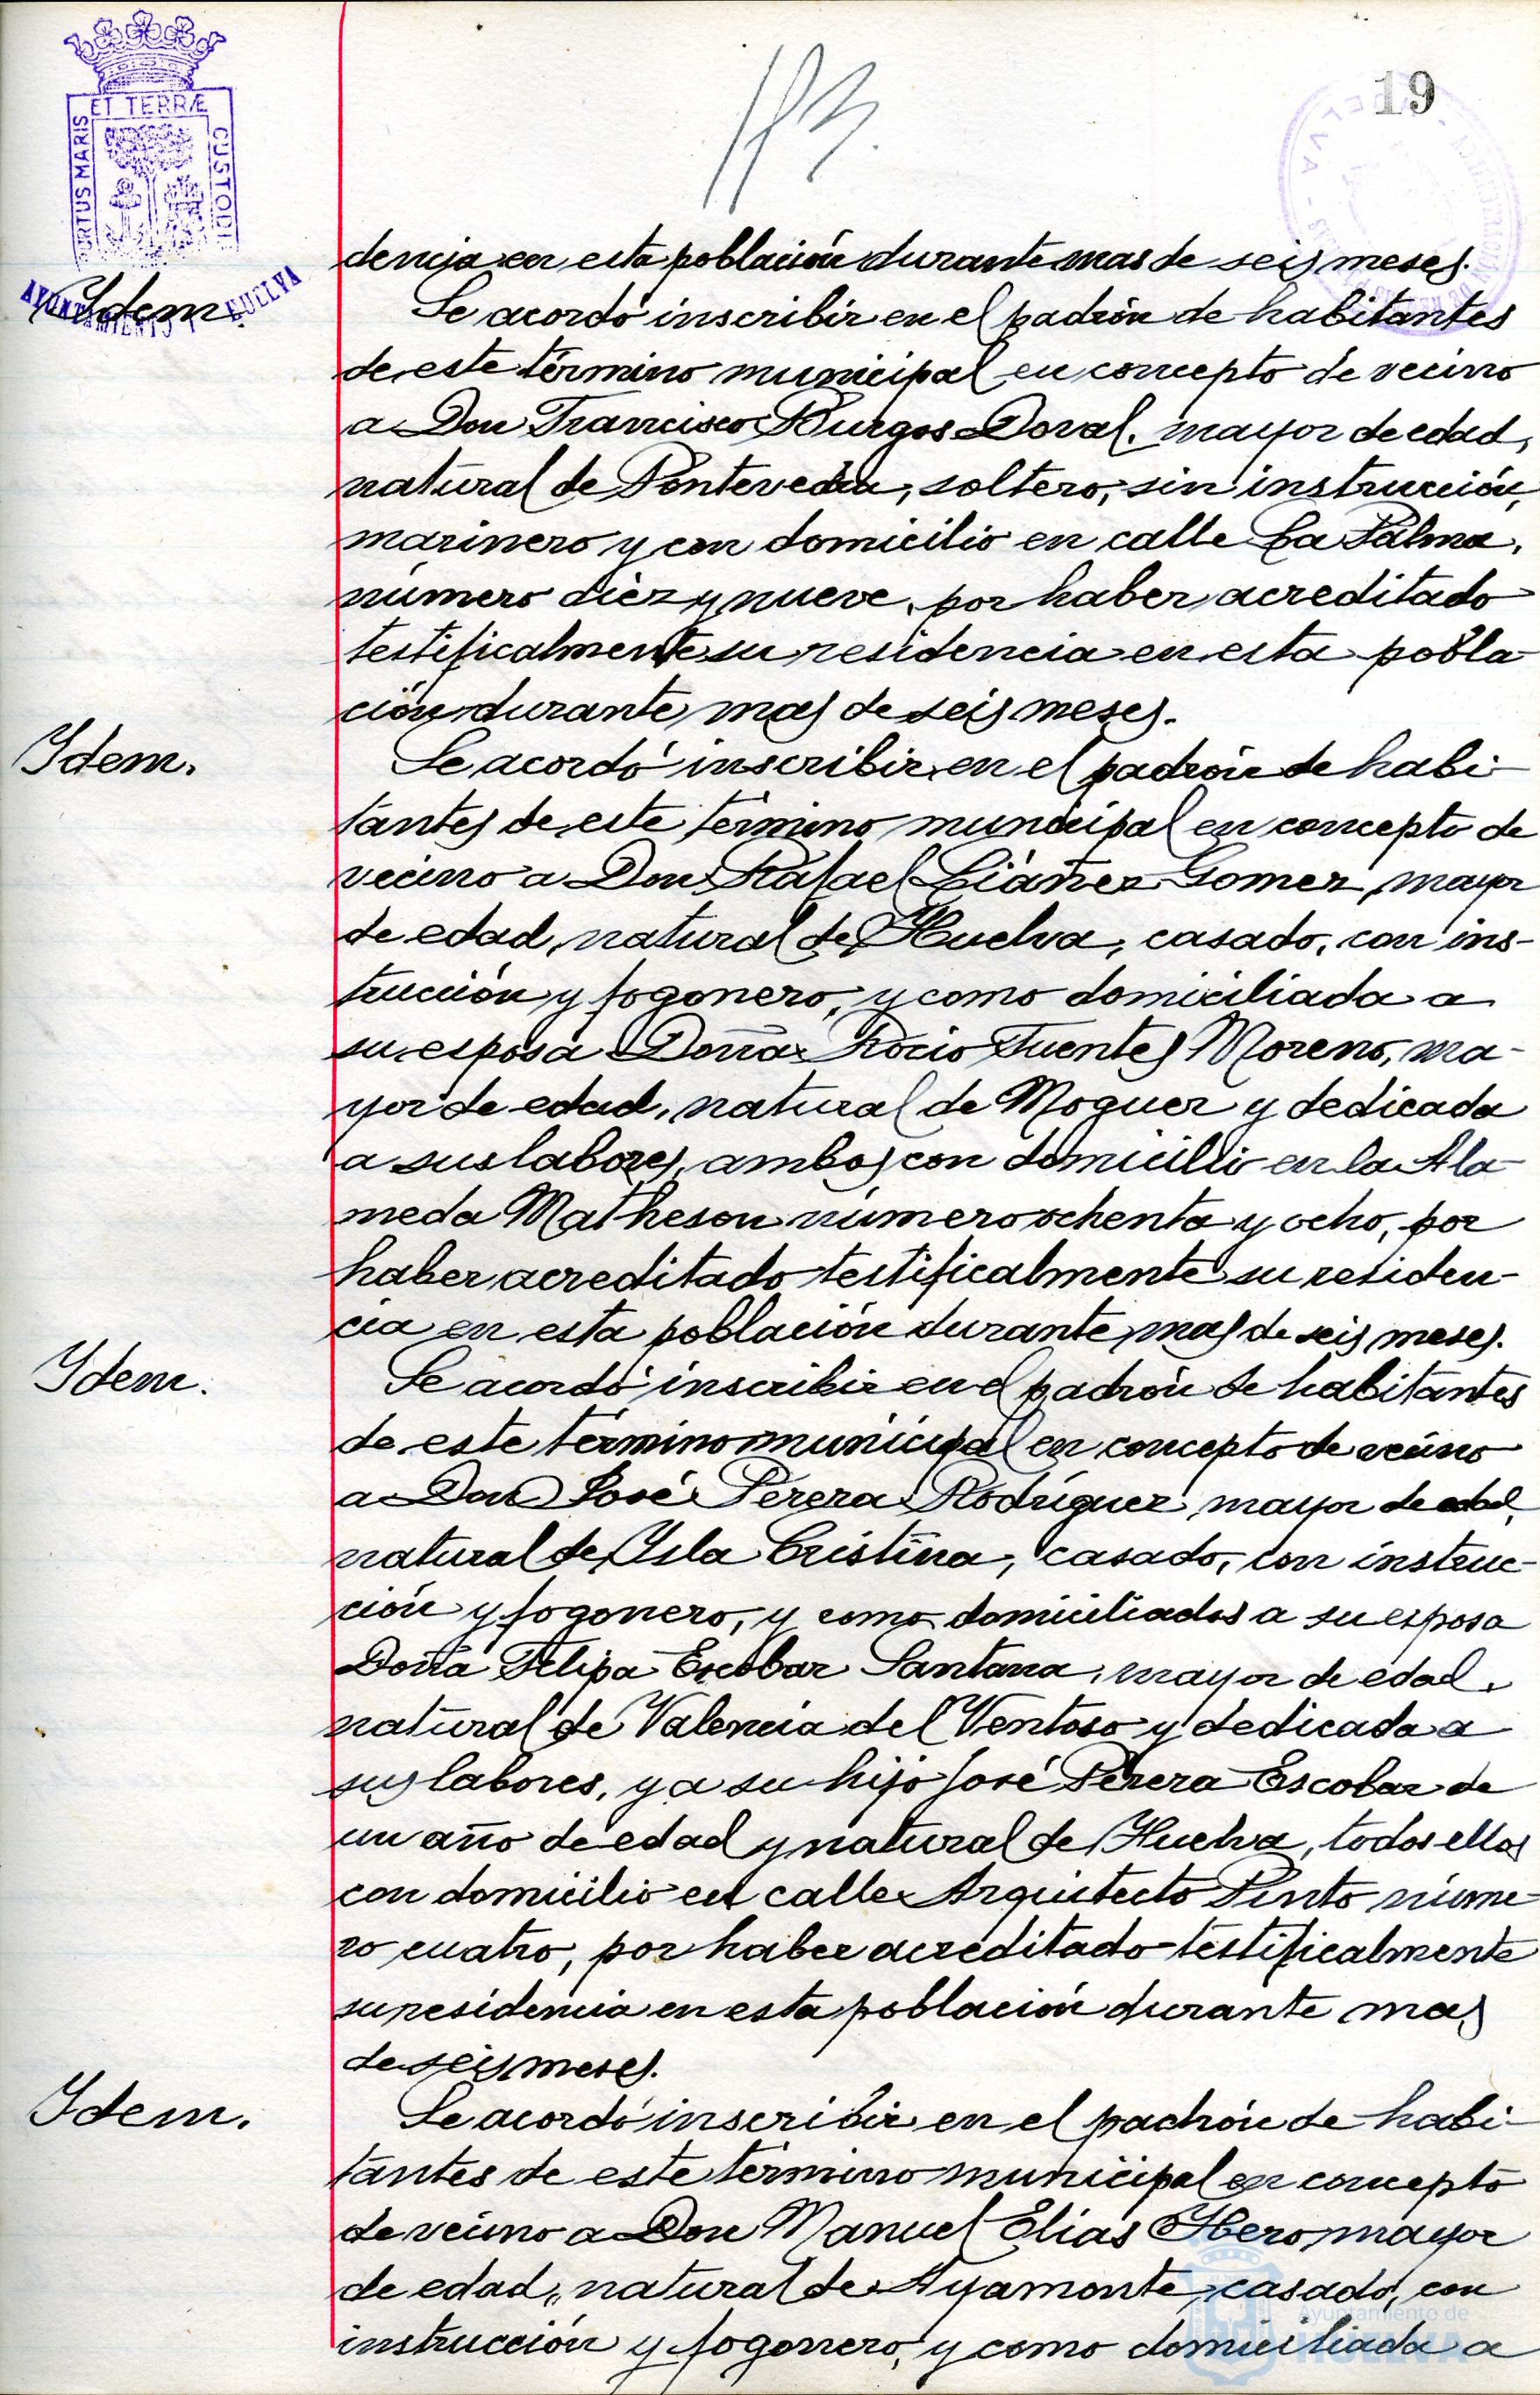 19
113.
ET TERRÆ
PORTUS MARIS
CUSTODIA
AYUNTAMIENTO HUELVA
dencia en esta población durante mas de seis meses.
Idem.
Se acordó inscribir en el padrón de habitantes
de este término municipal en concepto de vecino
a Don Francisco Burgos Doval, mayor de edad,
natural de Pontevedra, soltero, sin instrucción,
marinero y con domicilio en calle La Palma,
número diez y nueve, por haber acreditado
testificalmente su residencia en esta pobla-
ción durante mas de seis meses.
Idem.
Se acordó inscribir en el padrón de habi-
tantes de este término municipal en concepto de
vecino a Don Rafael Liáñez Gomez, mayor
de edad, natural de Huelva, casado, con ins-
trucción y fogonero, y como domiciliada a
su esposa Doña Rocio Fuentes Moreno, ma-
yor de edad, natural de Moguer y dedicada
a sus labores, ambos con domicilio en la Ala-
meda Matheson número ochenta y ocho, por
haber acreditado testificalmente su residen-
cia en esta población durante mas de seis meses.
Idem.
Se acordó inscribir en el padrón de habitantes
de este término municipal en concepto de vecino
a Don José Perera Rodríguez, mayor de edad,
natural de Isla Cristina, casado, con instruc-
ción y fogonero, y como domiciliados a su esposa
Doña Felipa Escobar Santana, mayor de edad,
natural de Valencia del Ventoso y dedicada a
sus labores, y a su hijo José Perera Escobar de
un año de edad y natural de Huelva, todos ellos
con domicilio en calle Arquitecto Pinto núme-
ro cuatro, por haber acreditado testificalmente
su residencia en esta población durante mas
de seis meses.
Idem.
Se acordó inscribir en el padrón de habi-
tantes de este término municipal en concepto
de vecino a Don Manuel Elias mayor
de edad, natural de Ayamonte, casado, con
instrucción y fogonero, y como domiciliada a
Ayuntamiento de
HUELVA